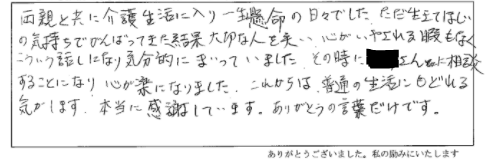 両親と共に介護生活に入り一生懸命の日々でした。ただ生きてほしい
の気持ちでがんばってきた結果大切な人を失い、心がいやされる暇もなく
こういう話しになり気分的にまいっていました。その時に さんに相談
することになり心が楽になりました。これからは、普通の生活にもどれる
気がします。本当に感謝しています。ありがとうの言葉だけです。
ありがとうございました。私の励みにいたします